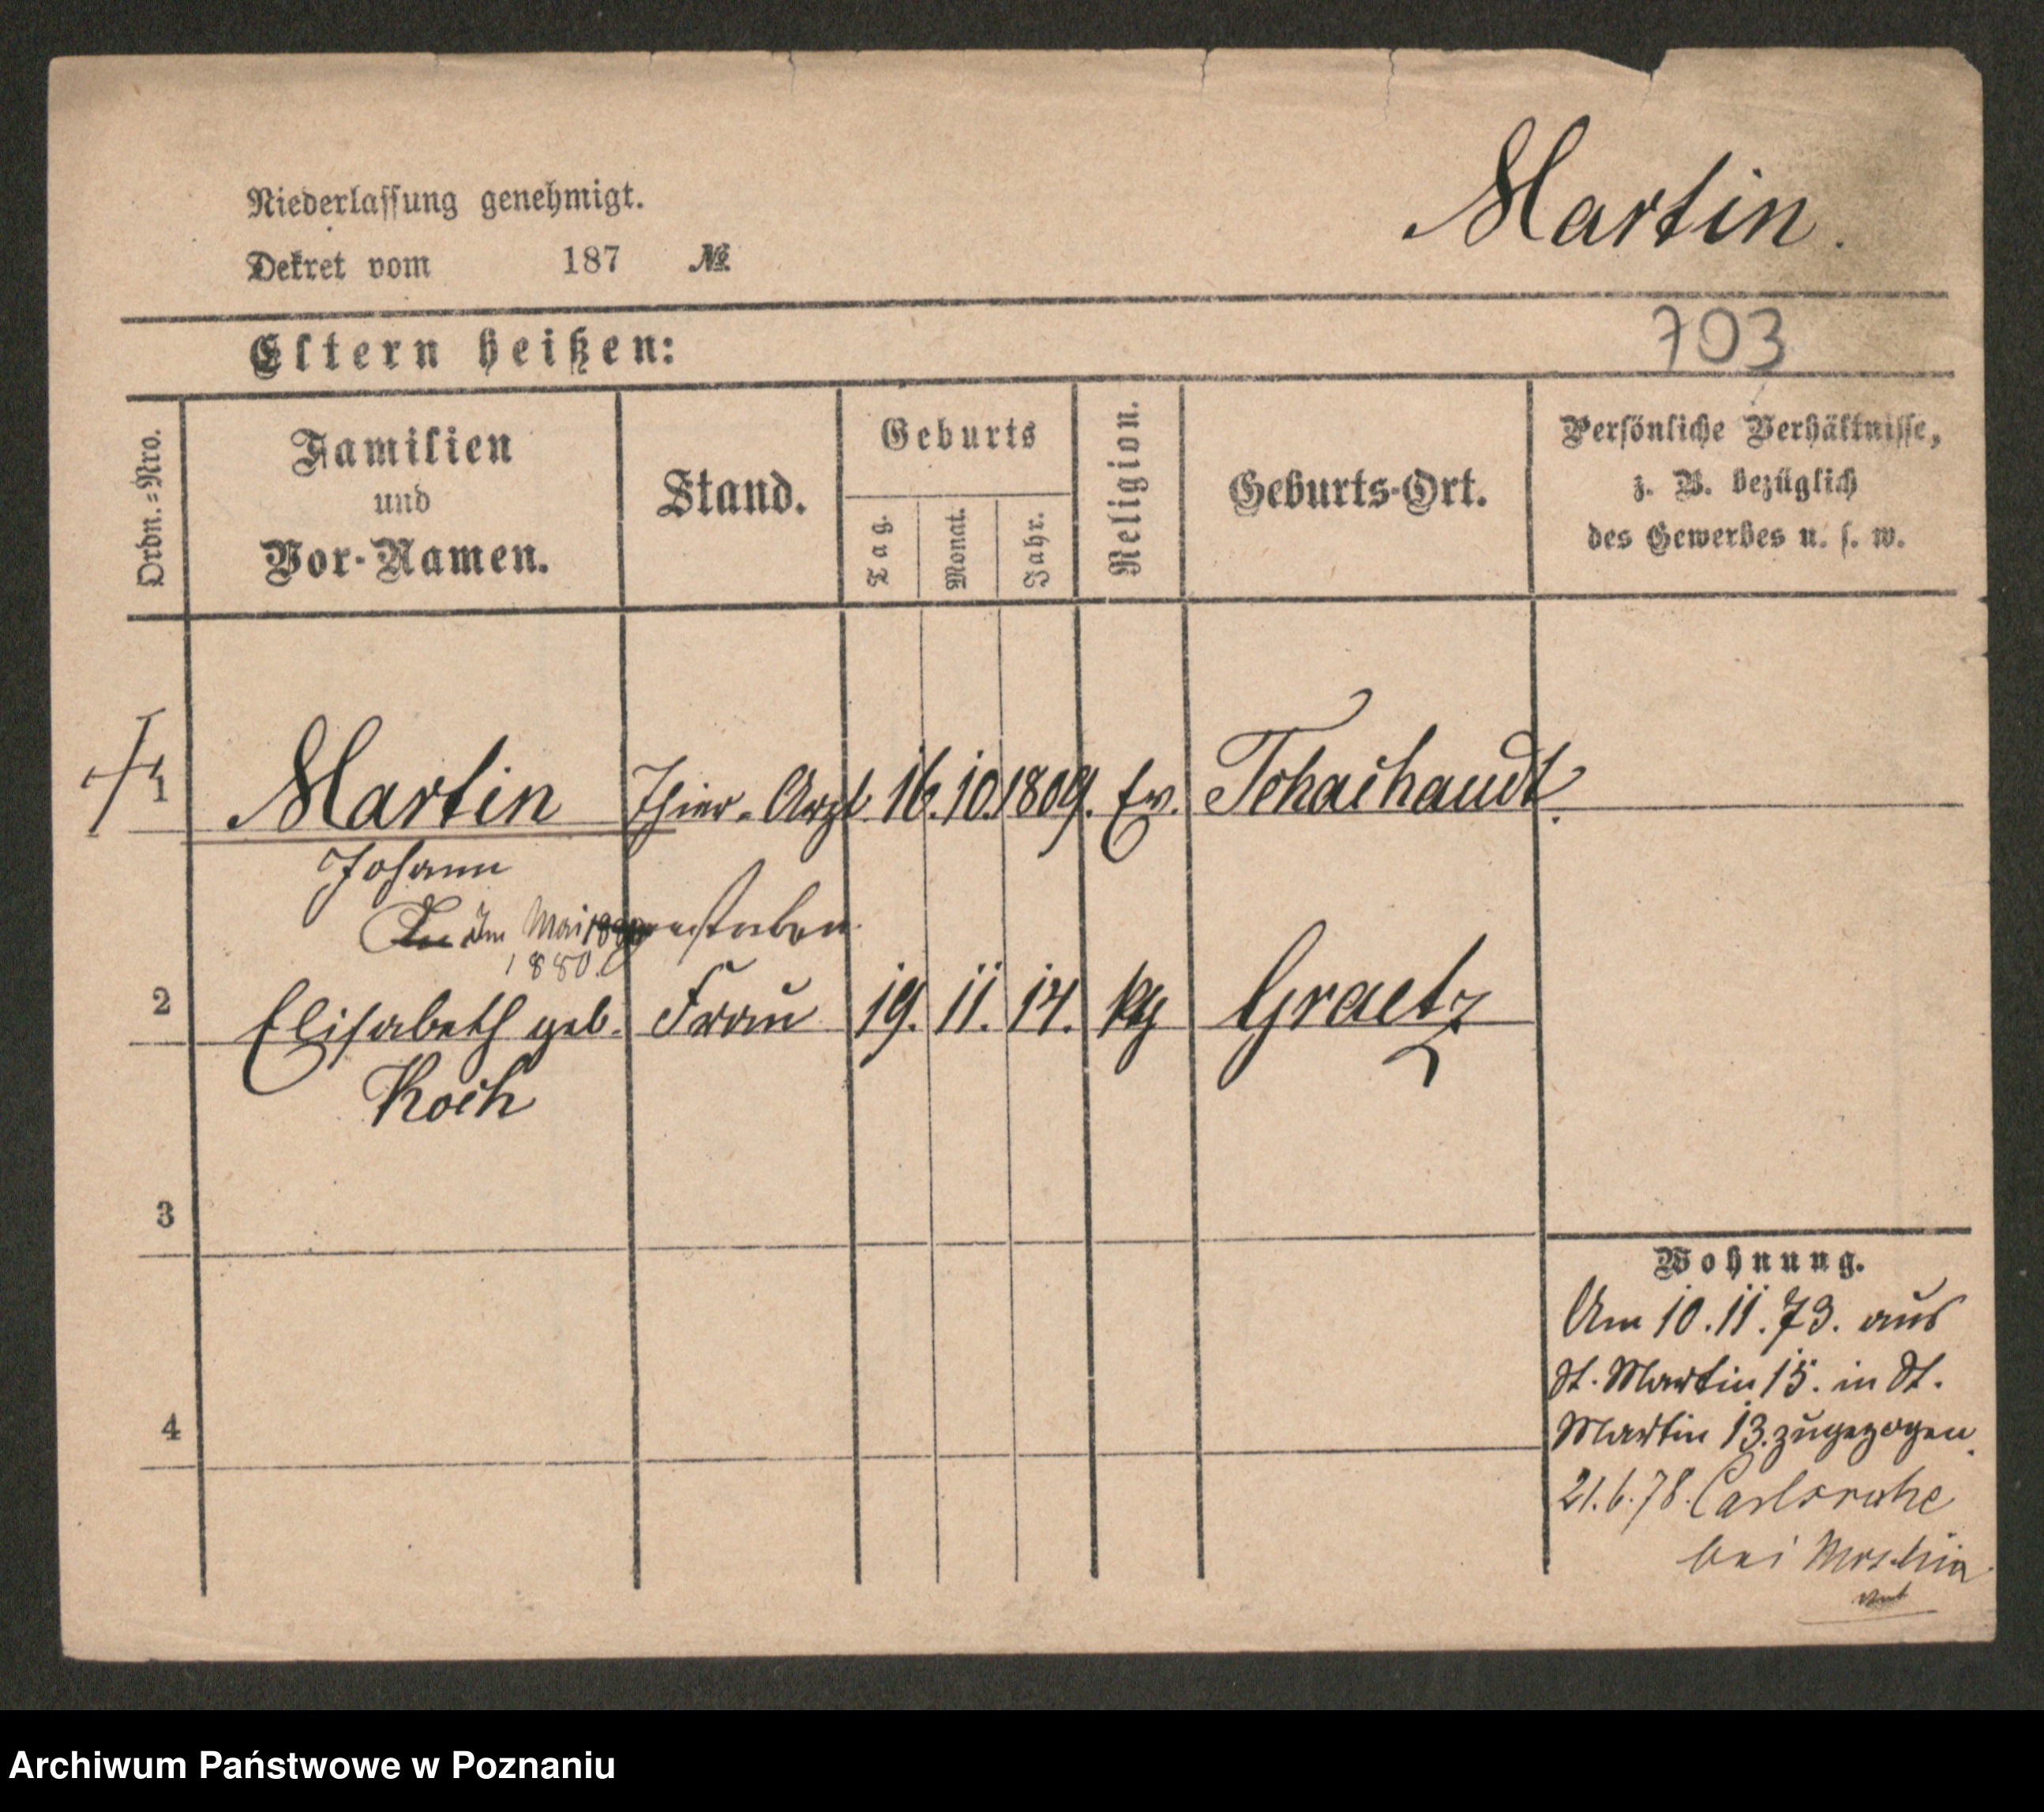 Martin.
Niederlassung genehmigt.
Dekret vom 187 №
703
Eltern heißen:
Ordn.=Nro.
Familien
und
Vor-Namen.
Stand.
Geburts
Tag. Monat. Jahr.
Religion.
Geburts-Ort.
Persönliche Verhältnisse,
z. B. bezüglich
des Gewerbes u. s. w.
1 Martin Thier-Arzt 16. 10. 1809. Ev. Schaihaudt.
Johann
Im Mai gestorben
1880.
2 Elisabeth geb. Frau 19. 11. 14. kg Graetz
Koch
3
4
Wohnung.
Am 10.11.73. aus
St. Martin 15. in St.
Martin 13. zugezogen.
21.6.78. Carlsruhe
bei Moschin
Archiwum Państwowe w Poznaniu